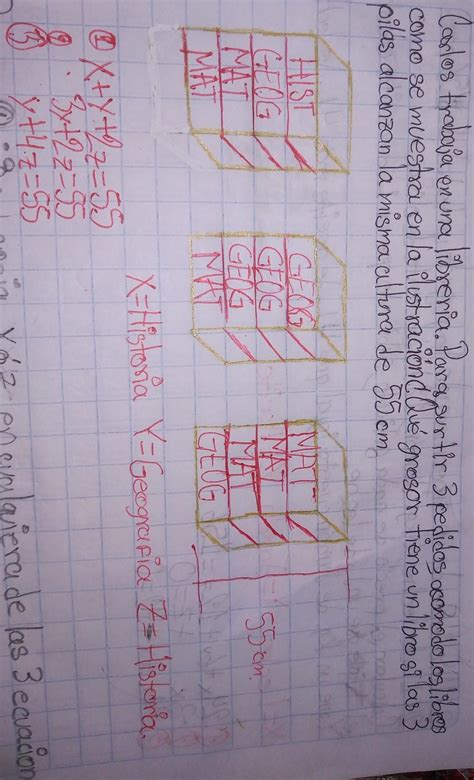 Carlos trabaja en una libreria. Para surtir 3 pedidos acomodo los libros
como se muestra en la ilustración ¿Qué grosor tiene un libro si las 3
pilas alcanzan la misma altura de 55 cm
HIST
GEOG
MAT
MAT
GEOG
GEOG
GEOG
MAT
MAT
MAT
MAT
GEOG
55 cm
X=Historia Y=Geografia Z=Historia.
① X+Y+2z=55
② 3y+2z=55
③ y+4z=55
en cualquiera de las 3 ecuacion